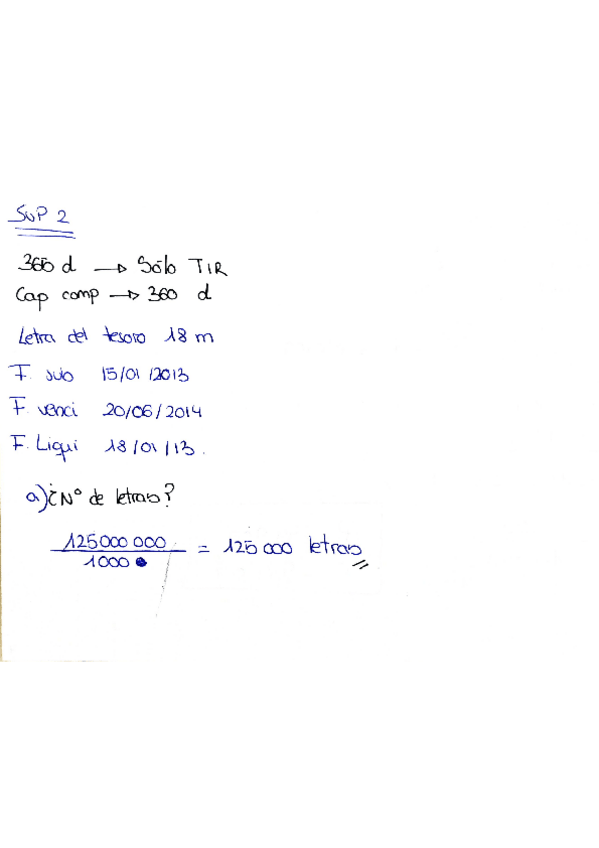 SUP 2
365 d → Sólo TIR
Cap comp → 360 d
Letra del tesoro 18 m
F. sub 15/01/2013
F. venci 20/06/2014
F. Liqui 18/01/13.
a) ¿Nº de letras?
125000 000
1000
= 125 000 letras